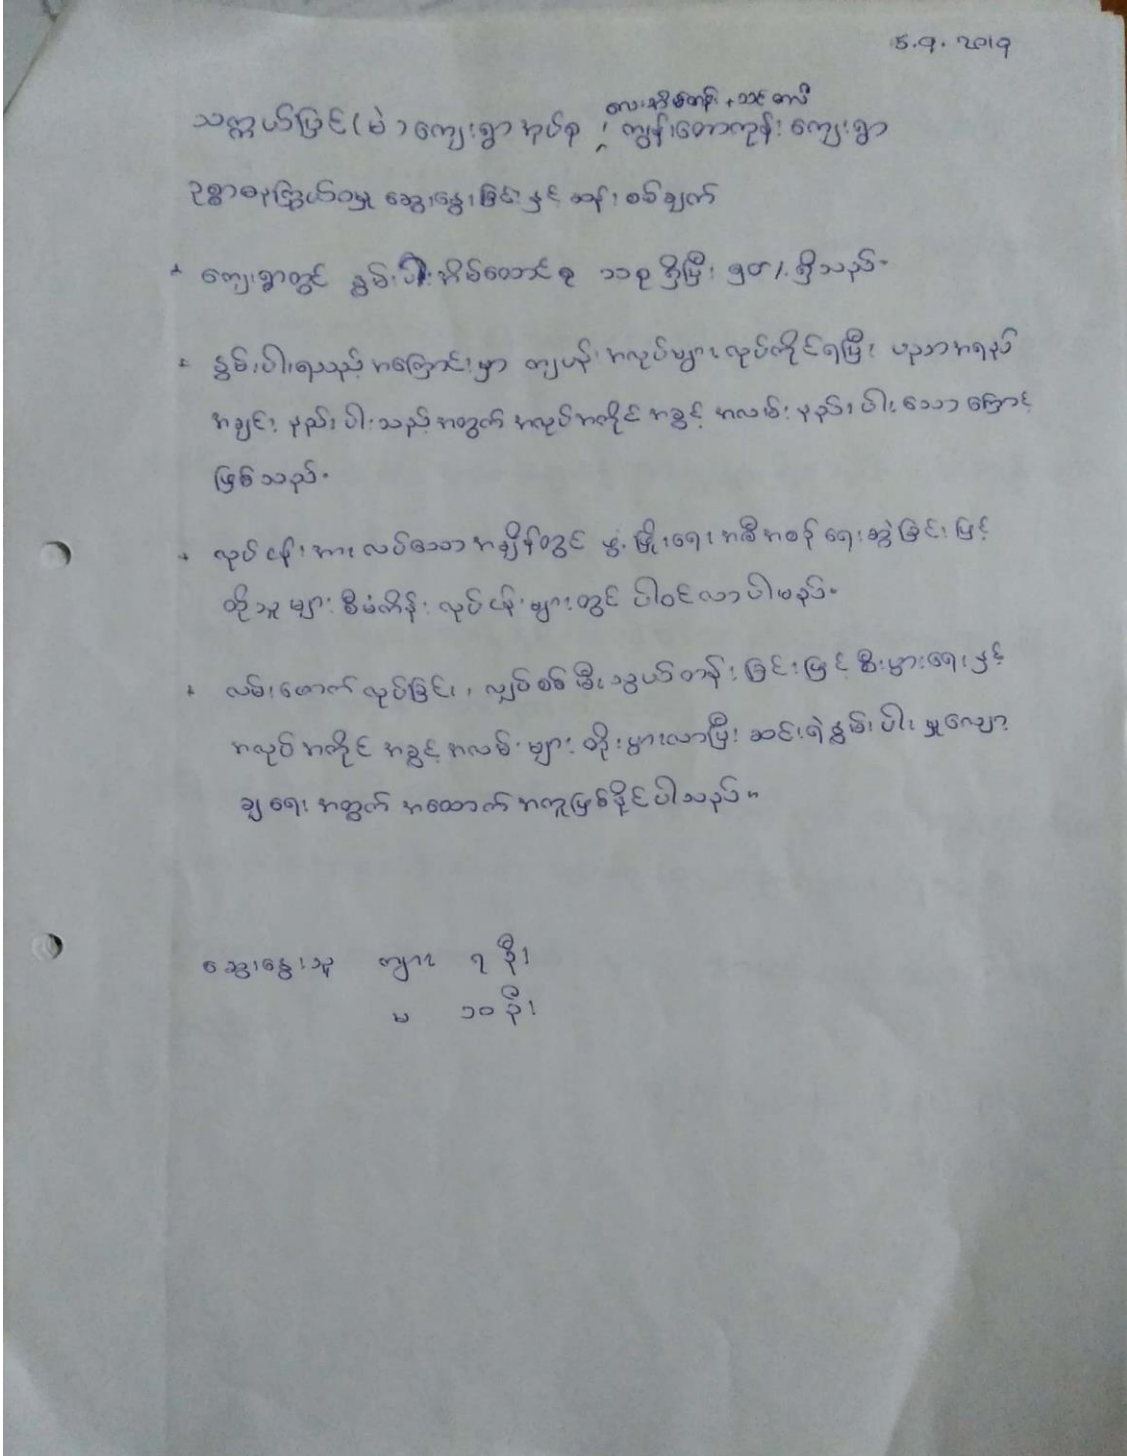 5.9.2019
လေးအိမ်တန်း + သင်္ဘော
သက္ကယ်ပြင် (မဲ) ကျေးရွာအုပ်စု၊ ကျွန်းတောကုန်း ကျေးရွာ
ဥစ္စာဓနကြွယ်ဝမှု ဆွေးနွေးခြင်းနှင့် ဆန်းစစ်ချက်
ကျေးရွာတွင် နွမ်းပါးအိမ်ထောင်စု ၁၁စု ရှိပြီး ရှိသည်။
နွမ်းပါးရသည့် အကြောင်းမှာ ကျပန်းအလုပ်များ လုပ်ကိုင်ရပြီး ပညာအရည်
အချင်း နည်းပါးသည့်အတွက် အလုပ်အကိုင် အခွင့်အလမ်း နည်းပါးသောကြောင့်
ဖြစ်သည်။
လုပ်ငန်းအားလပ်သောအချိန်တွင် ဖွံ့ဖြိုးရေး အစီအစဉ် ရေးဆွဲခြင်းဖြင့်
ထိုသူများ စီမံကိန်း လုပ်ငန်းများတွင် ပါဝင်လာပါမည်။
လမ်းဖောက်လုပ်ခြင်း၊ လျှပ်စစ်မီးသွယ်တန်းခြင်းဖြင့် စီးပွားရေးနှင့်
အလုပ်အကိုင် အခွင့်အလမ်းများ တိုးပွားလာပြီး ဆင်းရဲနွမ်းပါးမှုလျော့
ချရေးအတွက် အထောက်အကူဖြစ်နိုင်ပါသည်။
ဆွေးနွေးသူ ကျား ၇ ဦး
မ ၁၀ ဦး